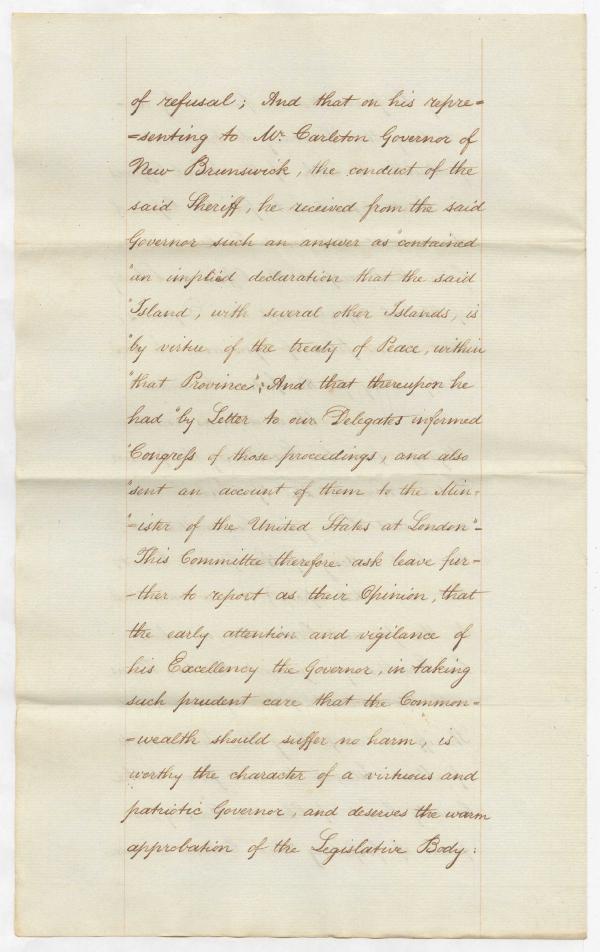 of refusal; And that on his repre=
=senting to Mr. Carleton Governor of
New Brunswick, the conduct of the
said Sheriff, he received from the said
Governor such an answer as "contained
"an implied declaration that the said
"Island, with several other Islands, is
"by virtue of the treaty of Peace, within
"that Province"; And that thereupon he
had "by Letter to our Delegates informed
"Congress of those proceedings, and also
"sent an account of them to the Min-
"-ister of the United States at London"-
This Committee therefore ask leave fur-
-ther to report as their Opinion, that
the early attention and vigilance of
his Excellency the Governor, in taking
such prudent care that the Common-
-wealth should suffer no harm, is
worthy the character of a virtuous and
patriotic Governor, and deserves the warm
approbation of the Legislative Body: